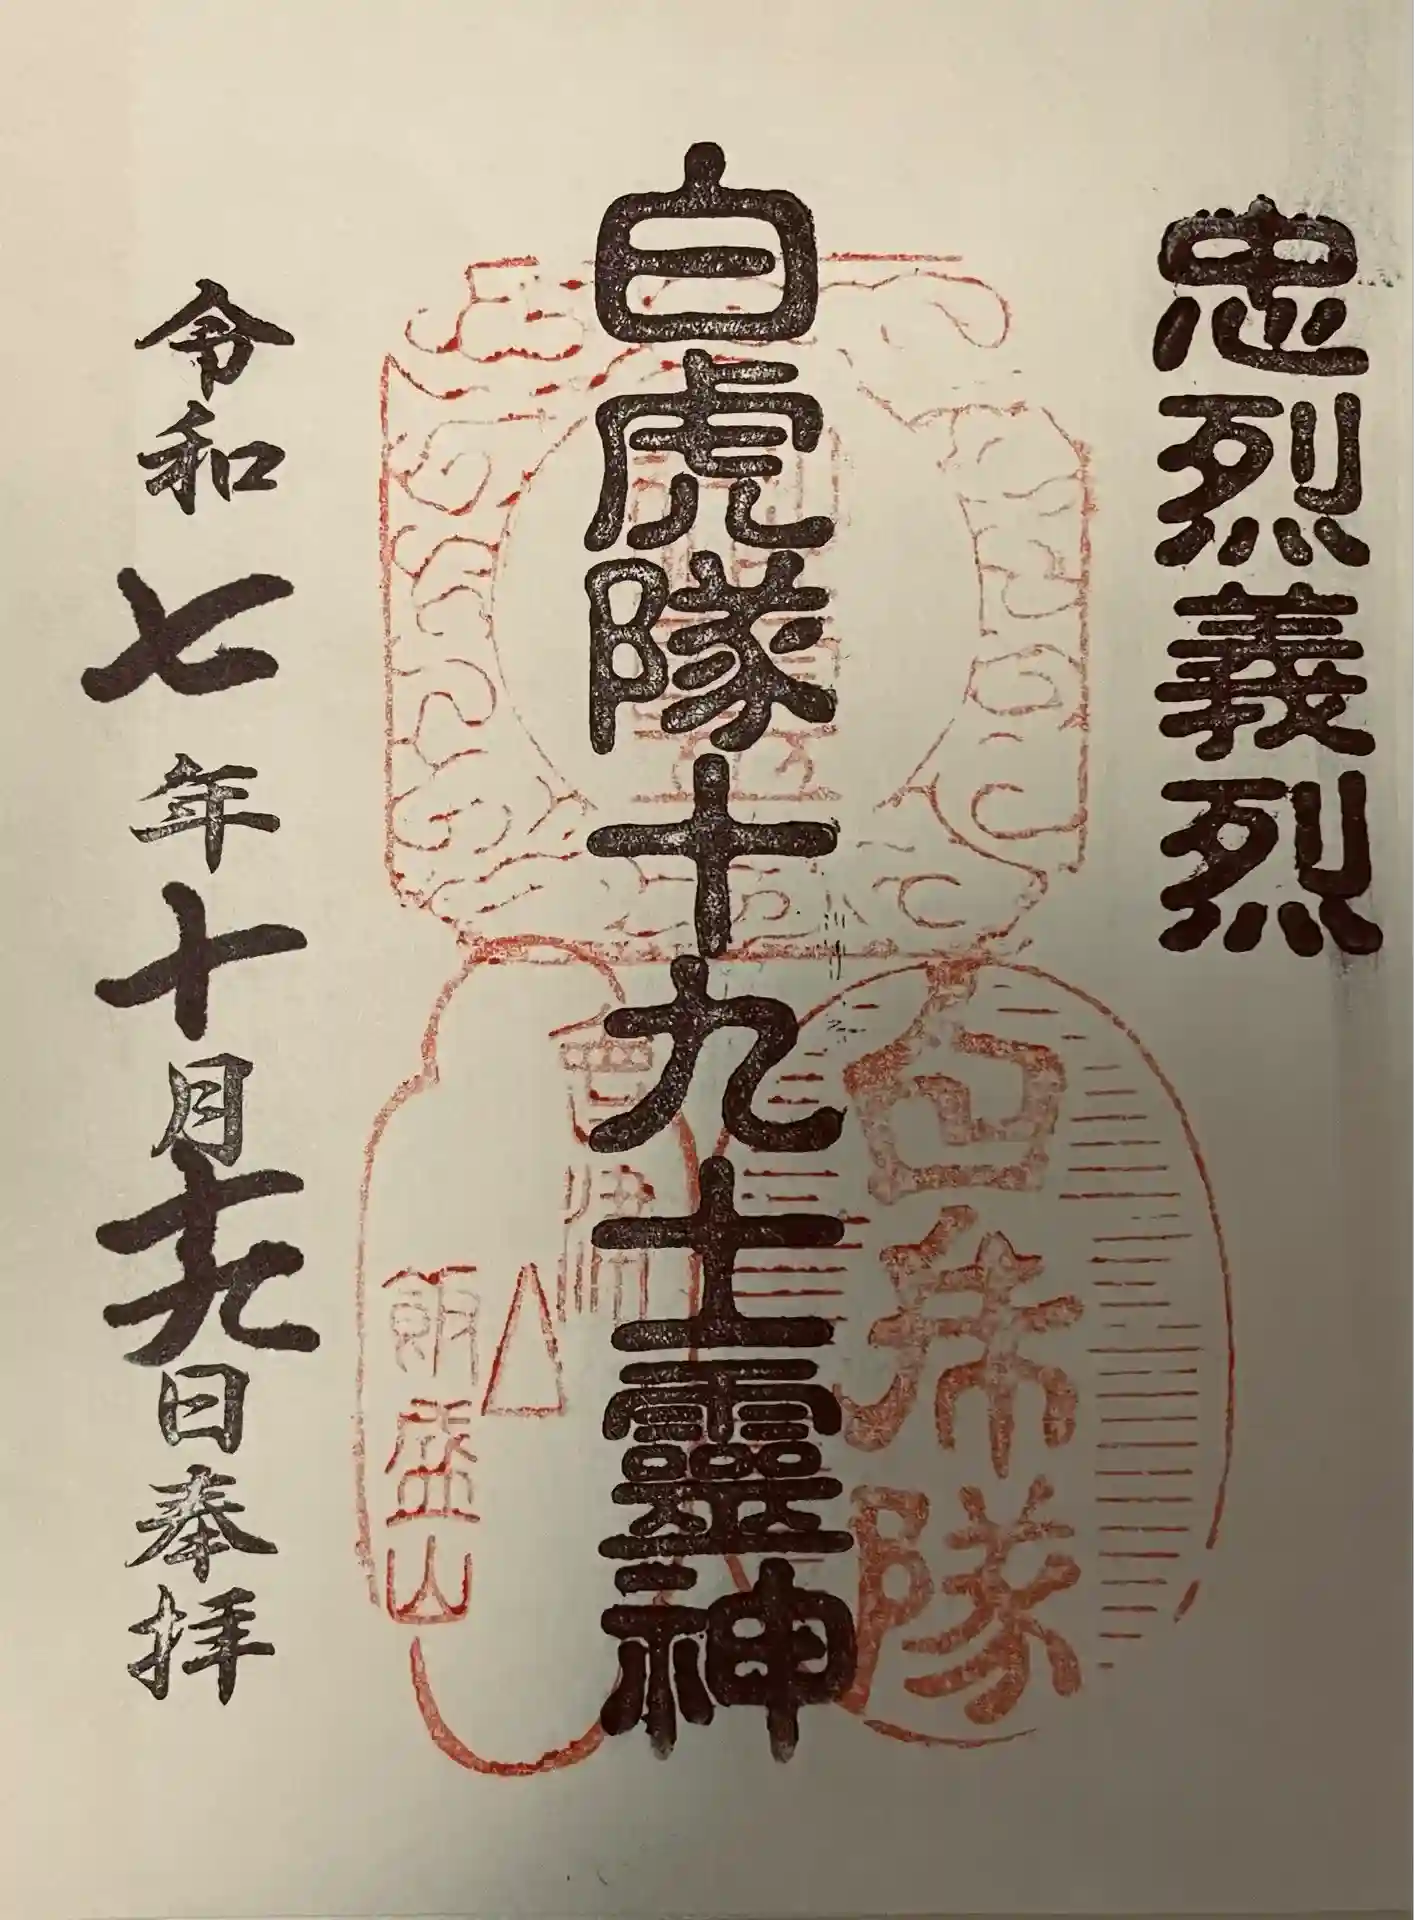 忠烈義烈
白虎隊十九士靈神
白虎隊
會津
飯盛山
令和七年十月十九日奉拝